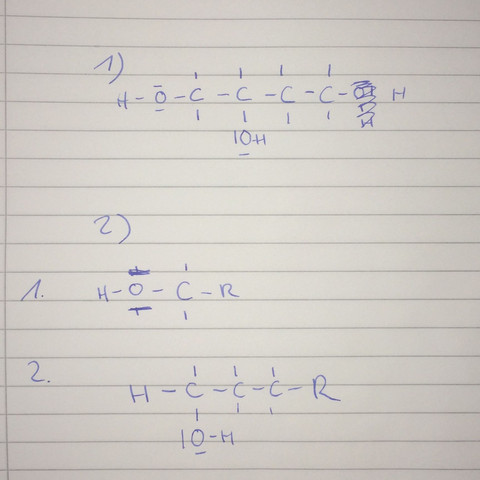 1)
H - O - C - C - C - C - H
IOH
2)
1. H - O - C - R
2. H - C - C - C - R
IO-H